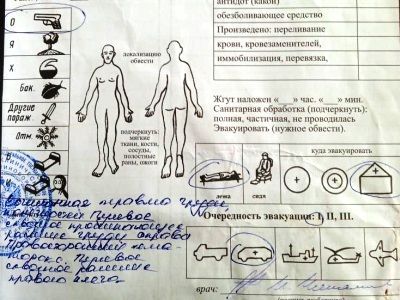 антидот (какой)
обезболивающее средство
Произведено: переливание
крови, кровезаменителей,
иммобилизация, перевязка,
О
Я
Х
бак.
Другие
пораж
Отм.
локализацию
обвести
подчеркнуть:
мягкие
ткани, кости,
сосуды,
полостные
раны, ожоги
Жгут наложен «__» час. «__» мин.
Санитарная обработка (подчеркнуть):
полная, частичная, не проводилась
Эвакуировать (нужное обвести).
куда эвакуировать
лежа
сидя
Очередность эвакуации: I, II, III.
врач:
травма груди
Пулевое
сквозное проникающее
ранение груди справа
Правосторонний гемо-
торакс. Пулевое
сквозное ранение
правого плеча